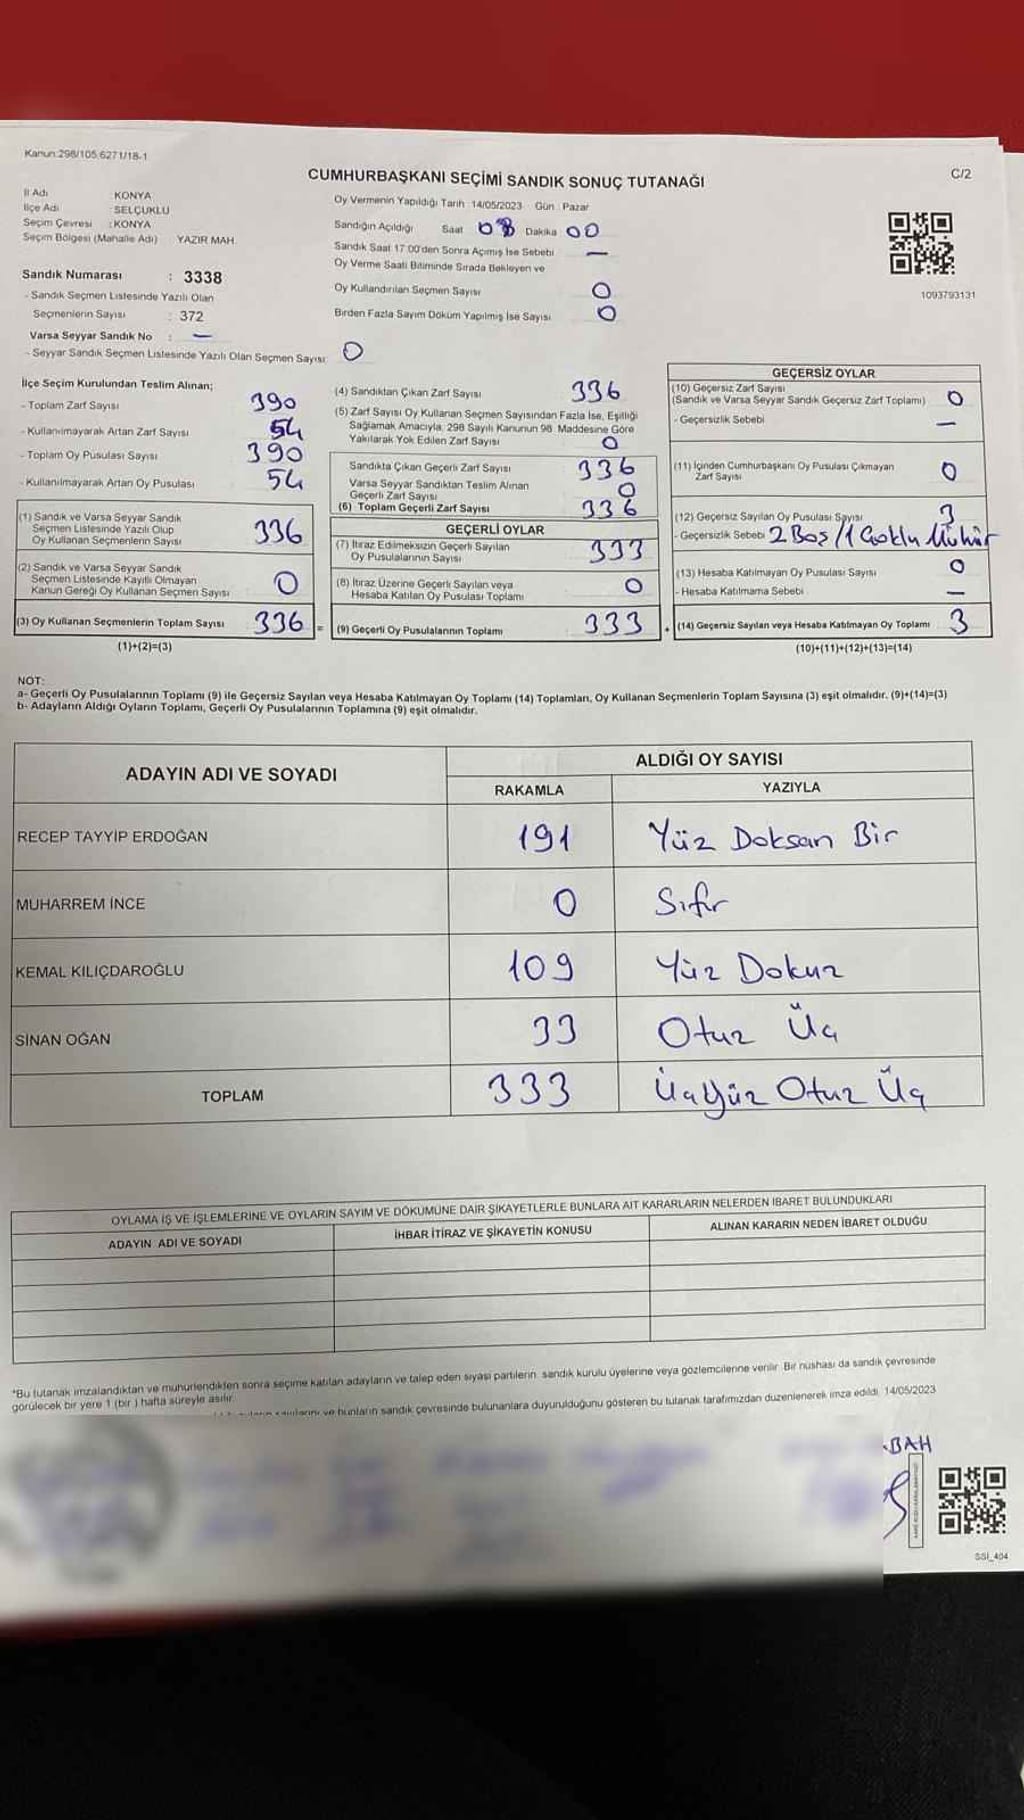 Kanun:298/105,6271/18-1
C/2
CUMHURBAŞKANI SEÇİMİ SANDIK SONUÇ TUTANAĞI
İl Adı : KONYA
İlçe Adı : SELÇUKLU
Seçim Çevresi : KONYA
Seçim Bölgesi (Mahalle Adı) YAZIR MAH.
Sandık Numarası : 3338
- Sandık Seçmen Listesinde Yazılı Olan
Seçmenlerin Sayısı : 372
Varsa Seyyar Sandık No : —
- Seyyar Sandık Seçmen Listesinde Yazılı Olan Seçmen Sayısı: 0
Oy Vermenin Yapıldığı Tarih :14/05/2023 Gün : Pazar
Sandığın Açıldığı Saat 08 Dakika 00
Sandık Saat 17:00'den Sonra Açımış İse Sebebi —
Oy Verme Saati Bitiminde Sırada Bekleyen ve
Oy Kullandırılan Seçmen Sayısı 0
Birden Fazla Sayım Döküm Yapılmış İse Sayısı 0
1093793131
İlçe Seçim Kurulundan Teslim Alınan;
- Toplam Zarf Sayısı 390
- Kullanılmayarak Artan Zarf Sayısı 54
- Toplam Oy Pusulası Sayısı 390
- Kullanılmayarak Artan Oy Pusulası 54
(1) Sandık ve Varsa Seyyar Sandık
Seçmen Listesinde Yazılı Olup
Oy Kullanan Seçmenlerin Sayısı 336
(2) Sandık ve Varsa Seyyar Sandık
Seçmen Listesinde Kayıtlı Olmayan
Kanun Gereği Oy Kullanan Seçmen Sayısı 0
(3) Oy Kullanan Seçmenlerin Toplam Sayısı 336 =
(1)+(2)=(3)
(4) Sandıktan Çıkan Zarf Sayısı 336
(5) Zarf Sayısı Oy Kullanan Seçmen Sayısından Fazla İse, Eşitliği
Sağlamak Amacıyla, 298 Sayılı Kanunun 98. Maddesine Göre
Yakılarak Yok Edilen Zarf Sayısı 0
Sandıkta Çıkan Geçerli Zarf Sayısı 336
Varsa Seyyar Sandıktan Teslim Alınan
Geçerli Zarf Sayısı 0
(6) Toplam Geçerli Zarf Sayısı 336
GEÇERLİ OYLAR
(7) İtiraz Edilmeksizin Geçerli Sayılan
Oy Pusulalarının Sayısı 333
(8) İtiraz Üzerine Geçerli Sayılan veya
Hesaba Katılan Oy Pusulası Toplamı 0
(9) Geçerli Oy Pusulalarının Toplamı 333 +
GEÇERSİZ OYLAR
(10) Geçersiz Zarf Sayısı
(Sandık ve Varsa Seyyar Sandık Geçersiz Zarf Toplamı) 0
- Geçersizlik Sebebi —
(11) İçinden Cumhurbaşkanı Oy Pusulası Çıkmayan
Zarf Sayısı 0
(12) Geçersiz Sayılan Oy Pusulası Sayısı 3
- Geçersizlik Sebebi 2 Boş/1 Çoklu Mühür
(13) Hesaba Katılmayan Oy Pusulası Sayısı 0
- Hesaba Katılmama Sebebi —
(14) Geçersiz Sayılan veya Hesaba Katılmayan Oy Toplamı 3
(10)+(11)+(12)+(13)=(14)
NOT:
a- Geçerli Oy Pusulalarının Toplamı (9) ile Geçersiz Sayılan veya Hesaba Katılmayan Oy Toplamı (14) Toplamları, Oy Kullanan Seçmenlerin Toplam Sayısına (3) eşit olmalıdır. (9)+(14)=(3)
b- Adayların Aldığı Oyların Toplamı, Geçerli Oy Pusulalarının Toplamına (9) eşit olmalıdır.
ADAYIN ADI VE SOYADI ALDIĞI OY SAYISI
RAKAMLA YAZIYLA
RECEP TAYYİP ERDOĞAN 191 Yüz Doksan Bir
MUHARREM İNCE 0 Sıfır
KEMAL KILIÇDAROĞLU 109 Yüz Dokuz
SİNAN OĞAN 33 Otuz Üç
TOPLAM 333 ÜçYüz Otuz Üç
OYLAMA İŞ VE İŞLEMLERİNE VE OYLARIN SAYIM VE DÖKÜMÜNE DAİR ŞİKAYETLERLE BUNLARA AİT KARARLARIN NELERDEN İBARET BULUNDUKLARI
ADAYIN ADI VE SOYADI İHBAR İTİRAZ VE ŞİKAYETİN KONUSU ALINAN KARARIN NEDEN İBARET OLDUĞU
*Bu tutanak imzalandıktan ve mühürlendikten sonra seçime katılan adayların ve talep eden siyasi partilerin sandık kurulu üyelerine veya gözlemcilerine verilir. Bir nüshası da sandık çevresinde
görülecek bir yere 1 (bir ) hafta süreyle asılır.
ve bunların sandık çevresinde bulunanlara duyurulduğunu gösteren bu tutanak tarafımızdan düzenlenerek imza edildi. 14/05/2023
BAH
SSI_404